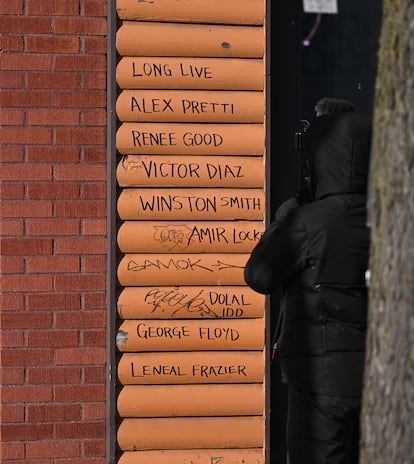 LONG LIVE
ALEX PRETTI
RENEE GOOD
VICTOR DIAZ
WINSTON SMITH
AMIR LOCK
DOLAL
IDD
GEORGE FLOYD
LENEAL FRAZIER